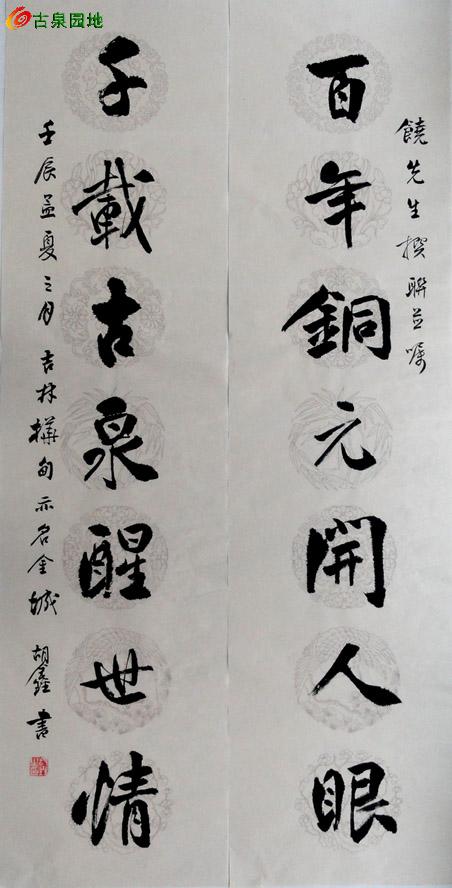 古泉园地
饒先生撰聯並嘱
百年銅元開人眼
千載古泉醒世情
壬辰孟夏之月吉林樺甸亦名金城胡鑫書